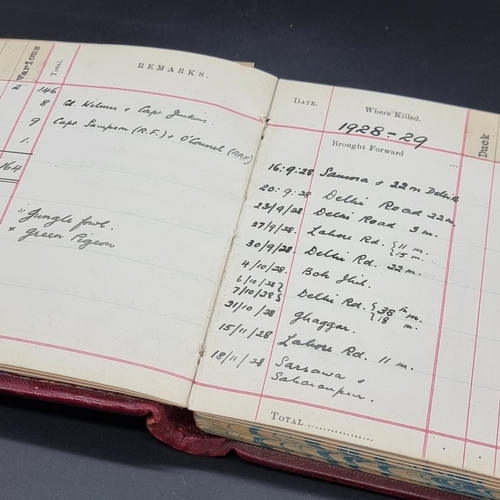 Various
Total.
REMARKS.
2 146
8 Col. Wilmer & Capt. Jenkins.
9 Capt. Sampson (R.F.) & O'Connel (RAF)
1.
164
:: Jungle fowl.
x Green Pigeon
DATE.
Where Killed.
Duck
1928-29
Brought Forward ...
16:9:28 Samora & 22 m Delhi
20:9:28 Delhi Road 22 m.
23/9/28 Delhi Road 3 m.
27/9/28 Lahore Rd. { 11 m.
{ 15 m.
30/9/28 Delhi Rd. 22 m.
4/10/28. Boh Jhil.
6/10/28 } Delhi Rd. { 38 m.
7/10/28 } { 18 m.
21/10/28 Ghaggar.
15/11/28 Lahore Rd. 11 m.
18/11/28 Sarsawa &
Saharanpur.
TOTAL